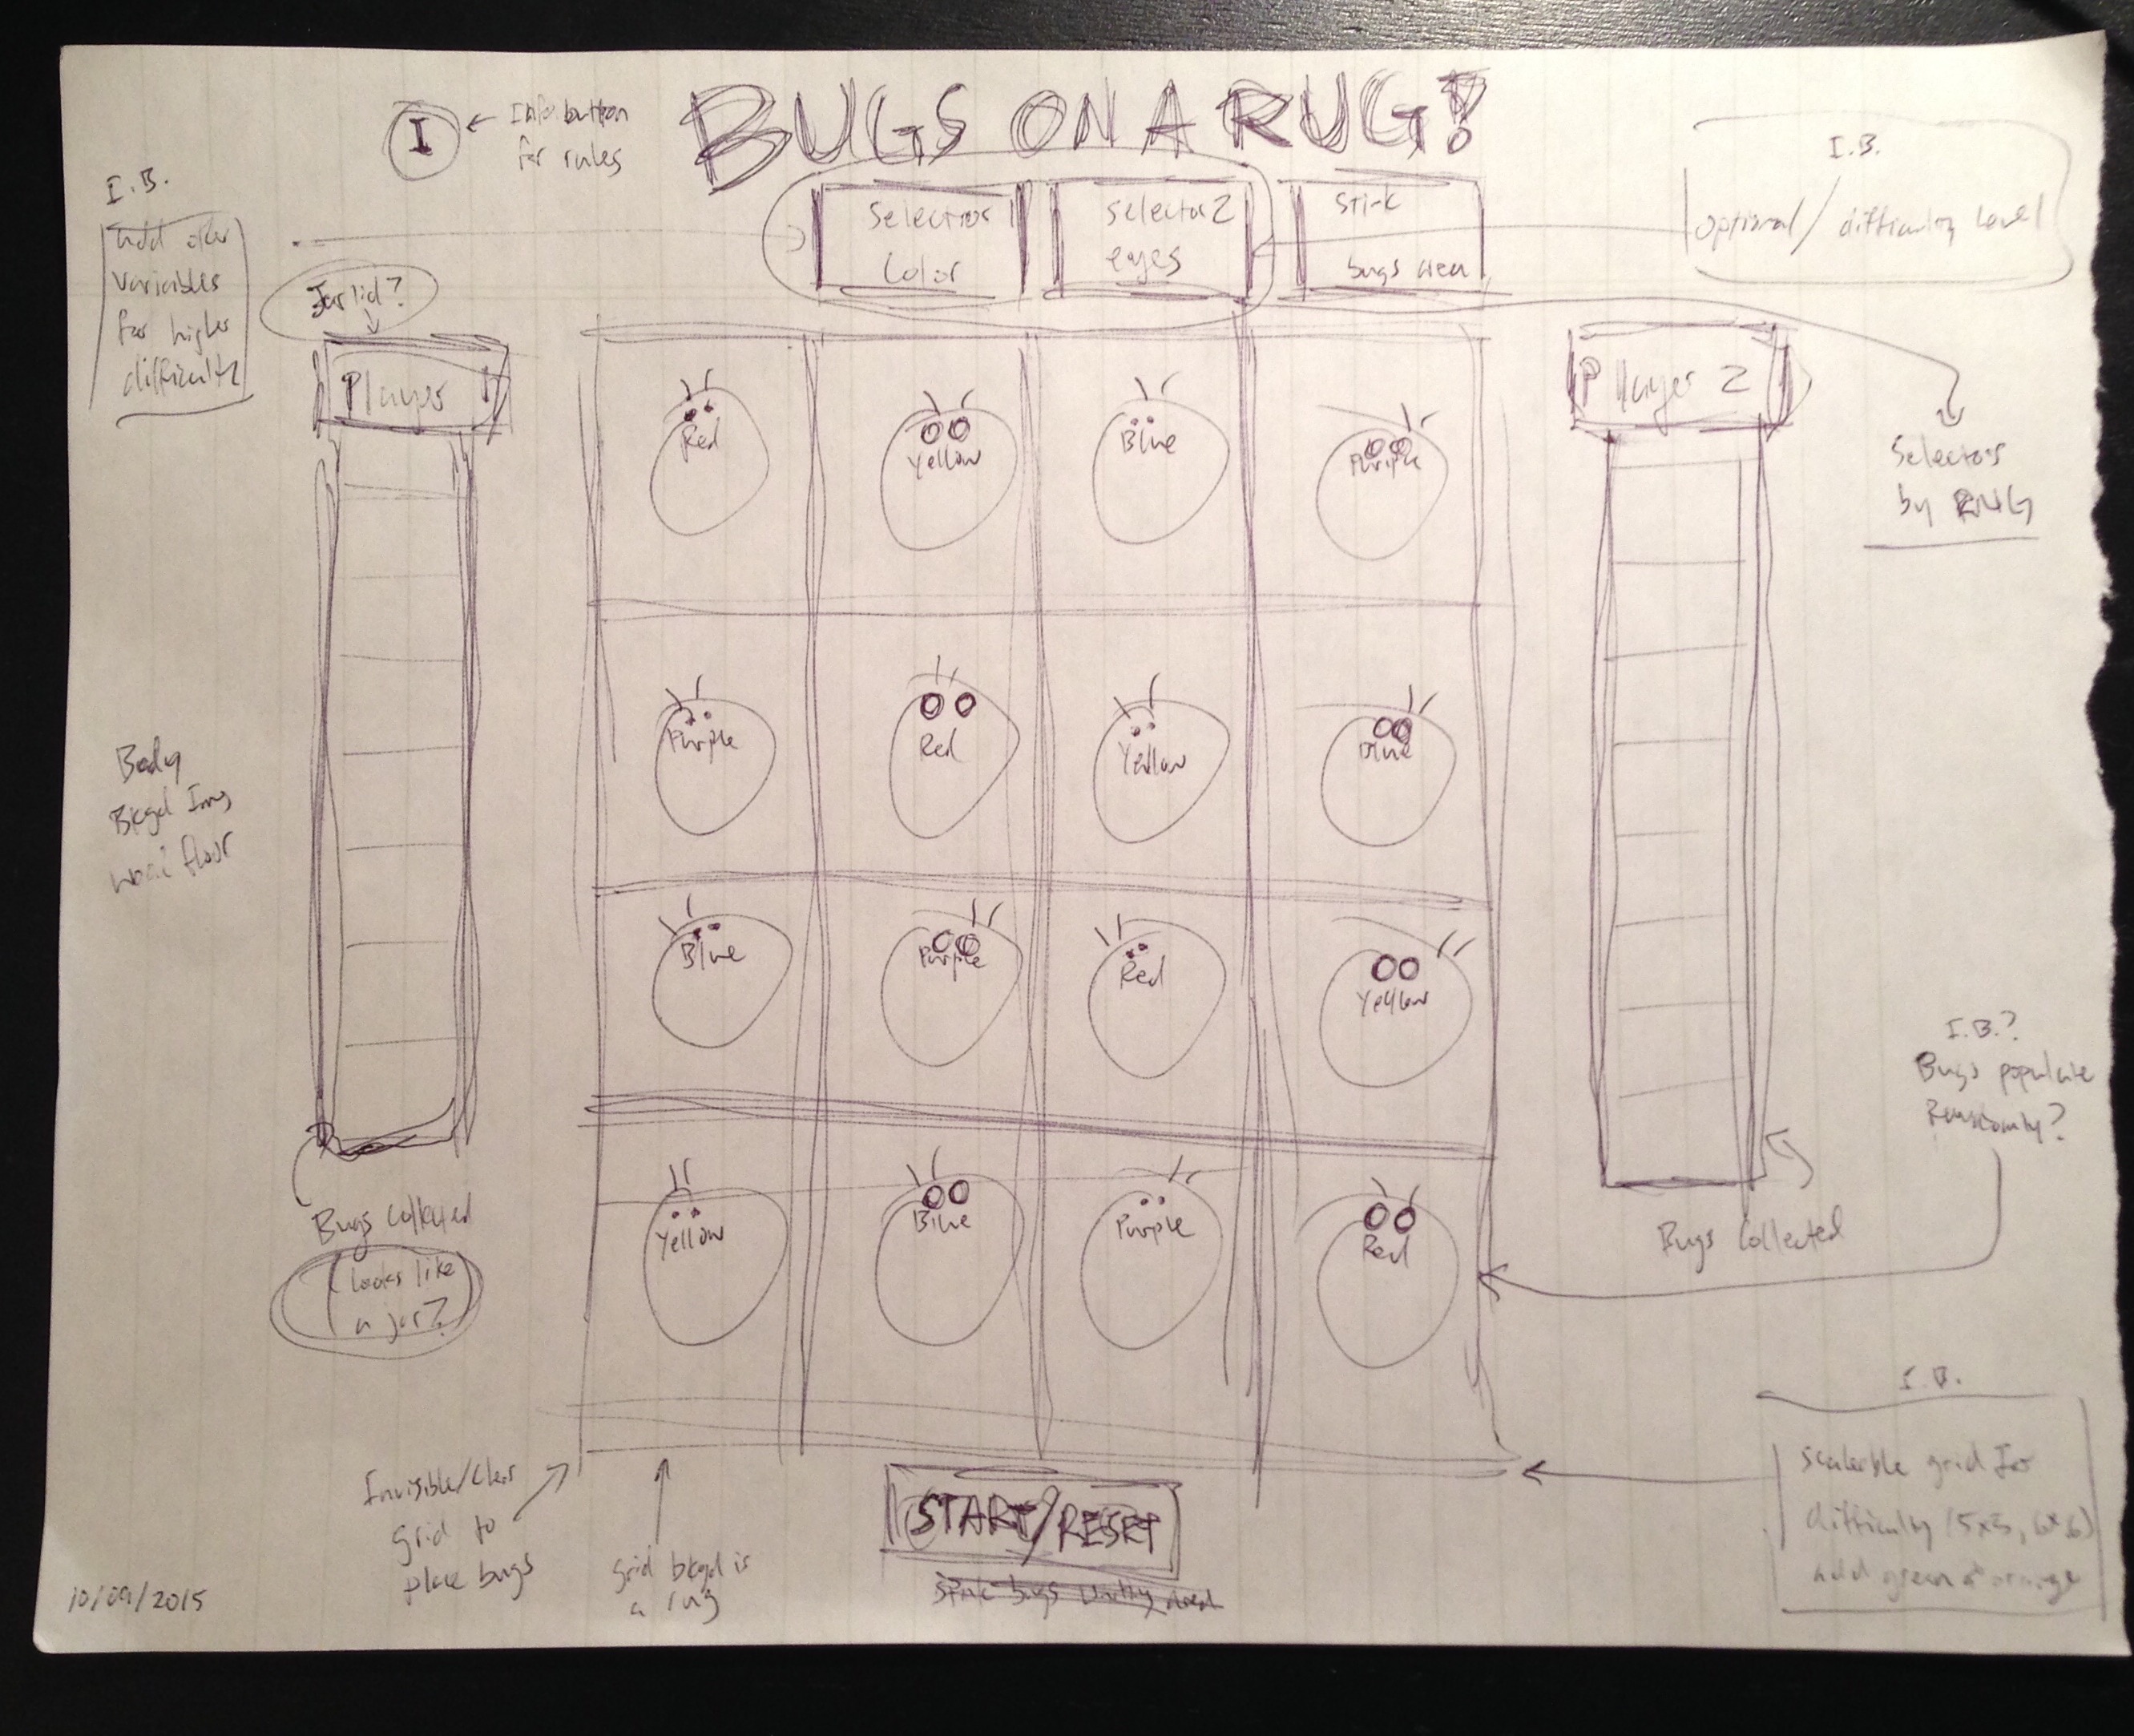 BUGS ON A RUG!
I
Info button
for rules
I.B.
Add other
variables
for higher
difficulty
Jar lid?
Selector 1
Color
Selector 2
eyes
Stink
bugs area
I.B.
optional/difficulty level
Player 1
Player 2
Selectors
by RNG
Red
Yellow
Blue
Purple
Purple
Red
Yellow
Blue
Blue
Purple
Red
Yellow
Yellow
Blue
Purple
Red
Body
Bkgd Img
wood floor
Bugs Collected
(looks like
a jar?)
I.B.?
Bugs populate
Randomly?
Bugs Collected
I.B.
scalable grid for
difficulty (5x5, 6x6)
add green & orange
Invisible/Clear
grid to
place bugs
grid bkgd is
a rug
START/RESET
Stink bugs
10/09/2015